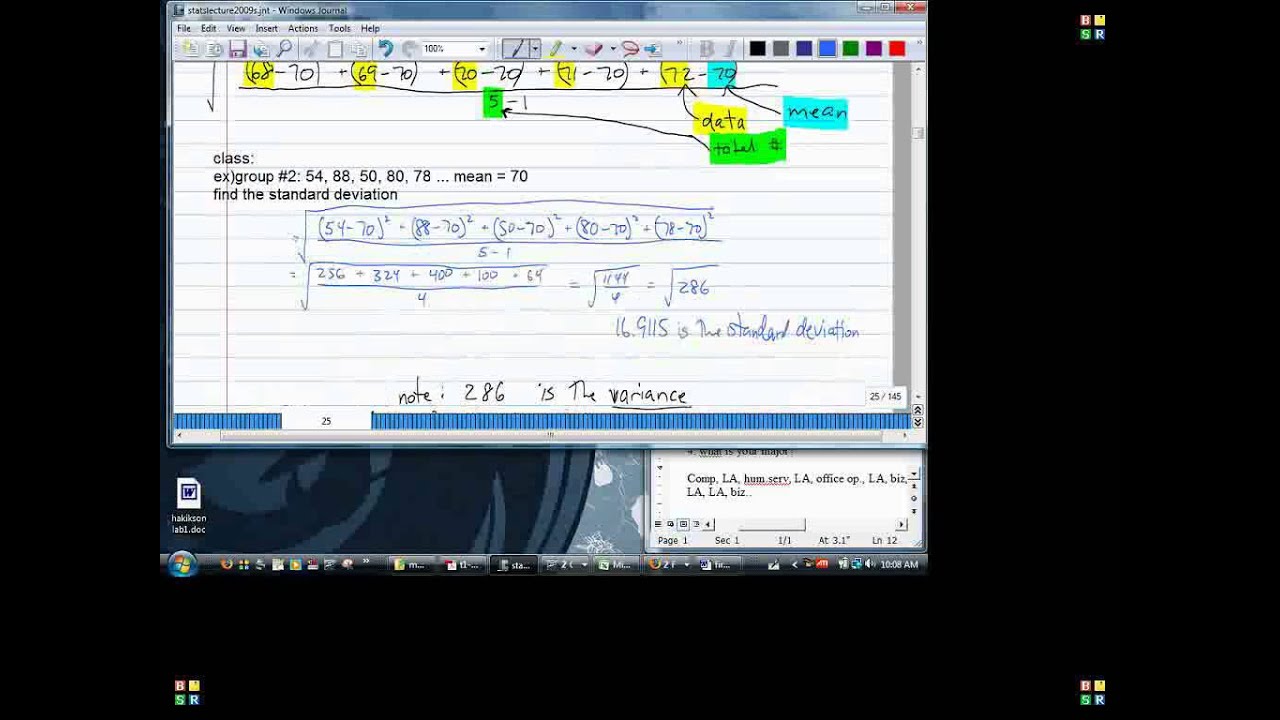 statslecture2009s.jnt - Windows Journal
File Edit View Insert Actions Tools Help
100%
(68-70) + (69-70) + (70-70) + (71-70) + (72-70)
5 - 1
data
mean
total #
class:
ex)group #2: 54, 88, 50, 80, 78 ... mean = 70
find the standard deviation
= √ (54-70)² + (88-70)² + (50-70)² + (80-70)² + (78-70)²
5 - 1
= √ 256 + 324 + 400 + 100 + 64 / 4 = √ 1144 / 4 = √ 286
16.9115 is the standard deviation
note: 286 is The variance
25 / 145
25
4. what is your major
Comp, LA, hum.serv, LA, office op., LA, biz,
LA, LA, biz..
hakikson
lab1.doc
Page 1 Sec 1 1/1 At 3.1" Ln 12
m... t1-... sta... 2 Mi... 2 10:08 AM
B
S R
B
S R
B
S R
B
S R